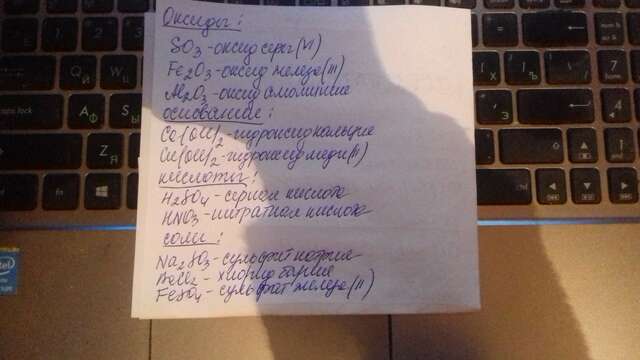 Оксиды:
SO3 - оксид серы (VI)
Fe2O3 - оксид железа (III)
Al2O3 - оксид алюминия
основание:
Ca(OH)2 - гидроксид кальция
Cu(OH)2 - гидроксид меди (II)
кислоты:
H2SO4 - серная кислота
HNO3 - нитратная кислота
соли:
Na2SO3 - сульфит натрия
BaCl2 - хлорид бария
FeSO4 - сульфат железа (II)